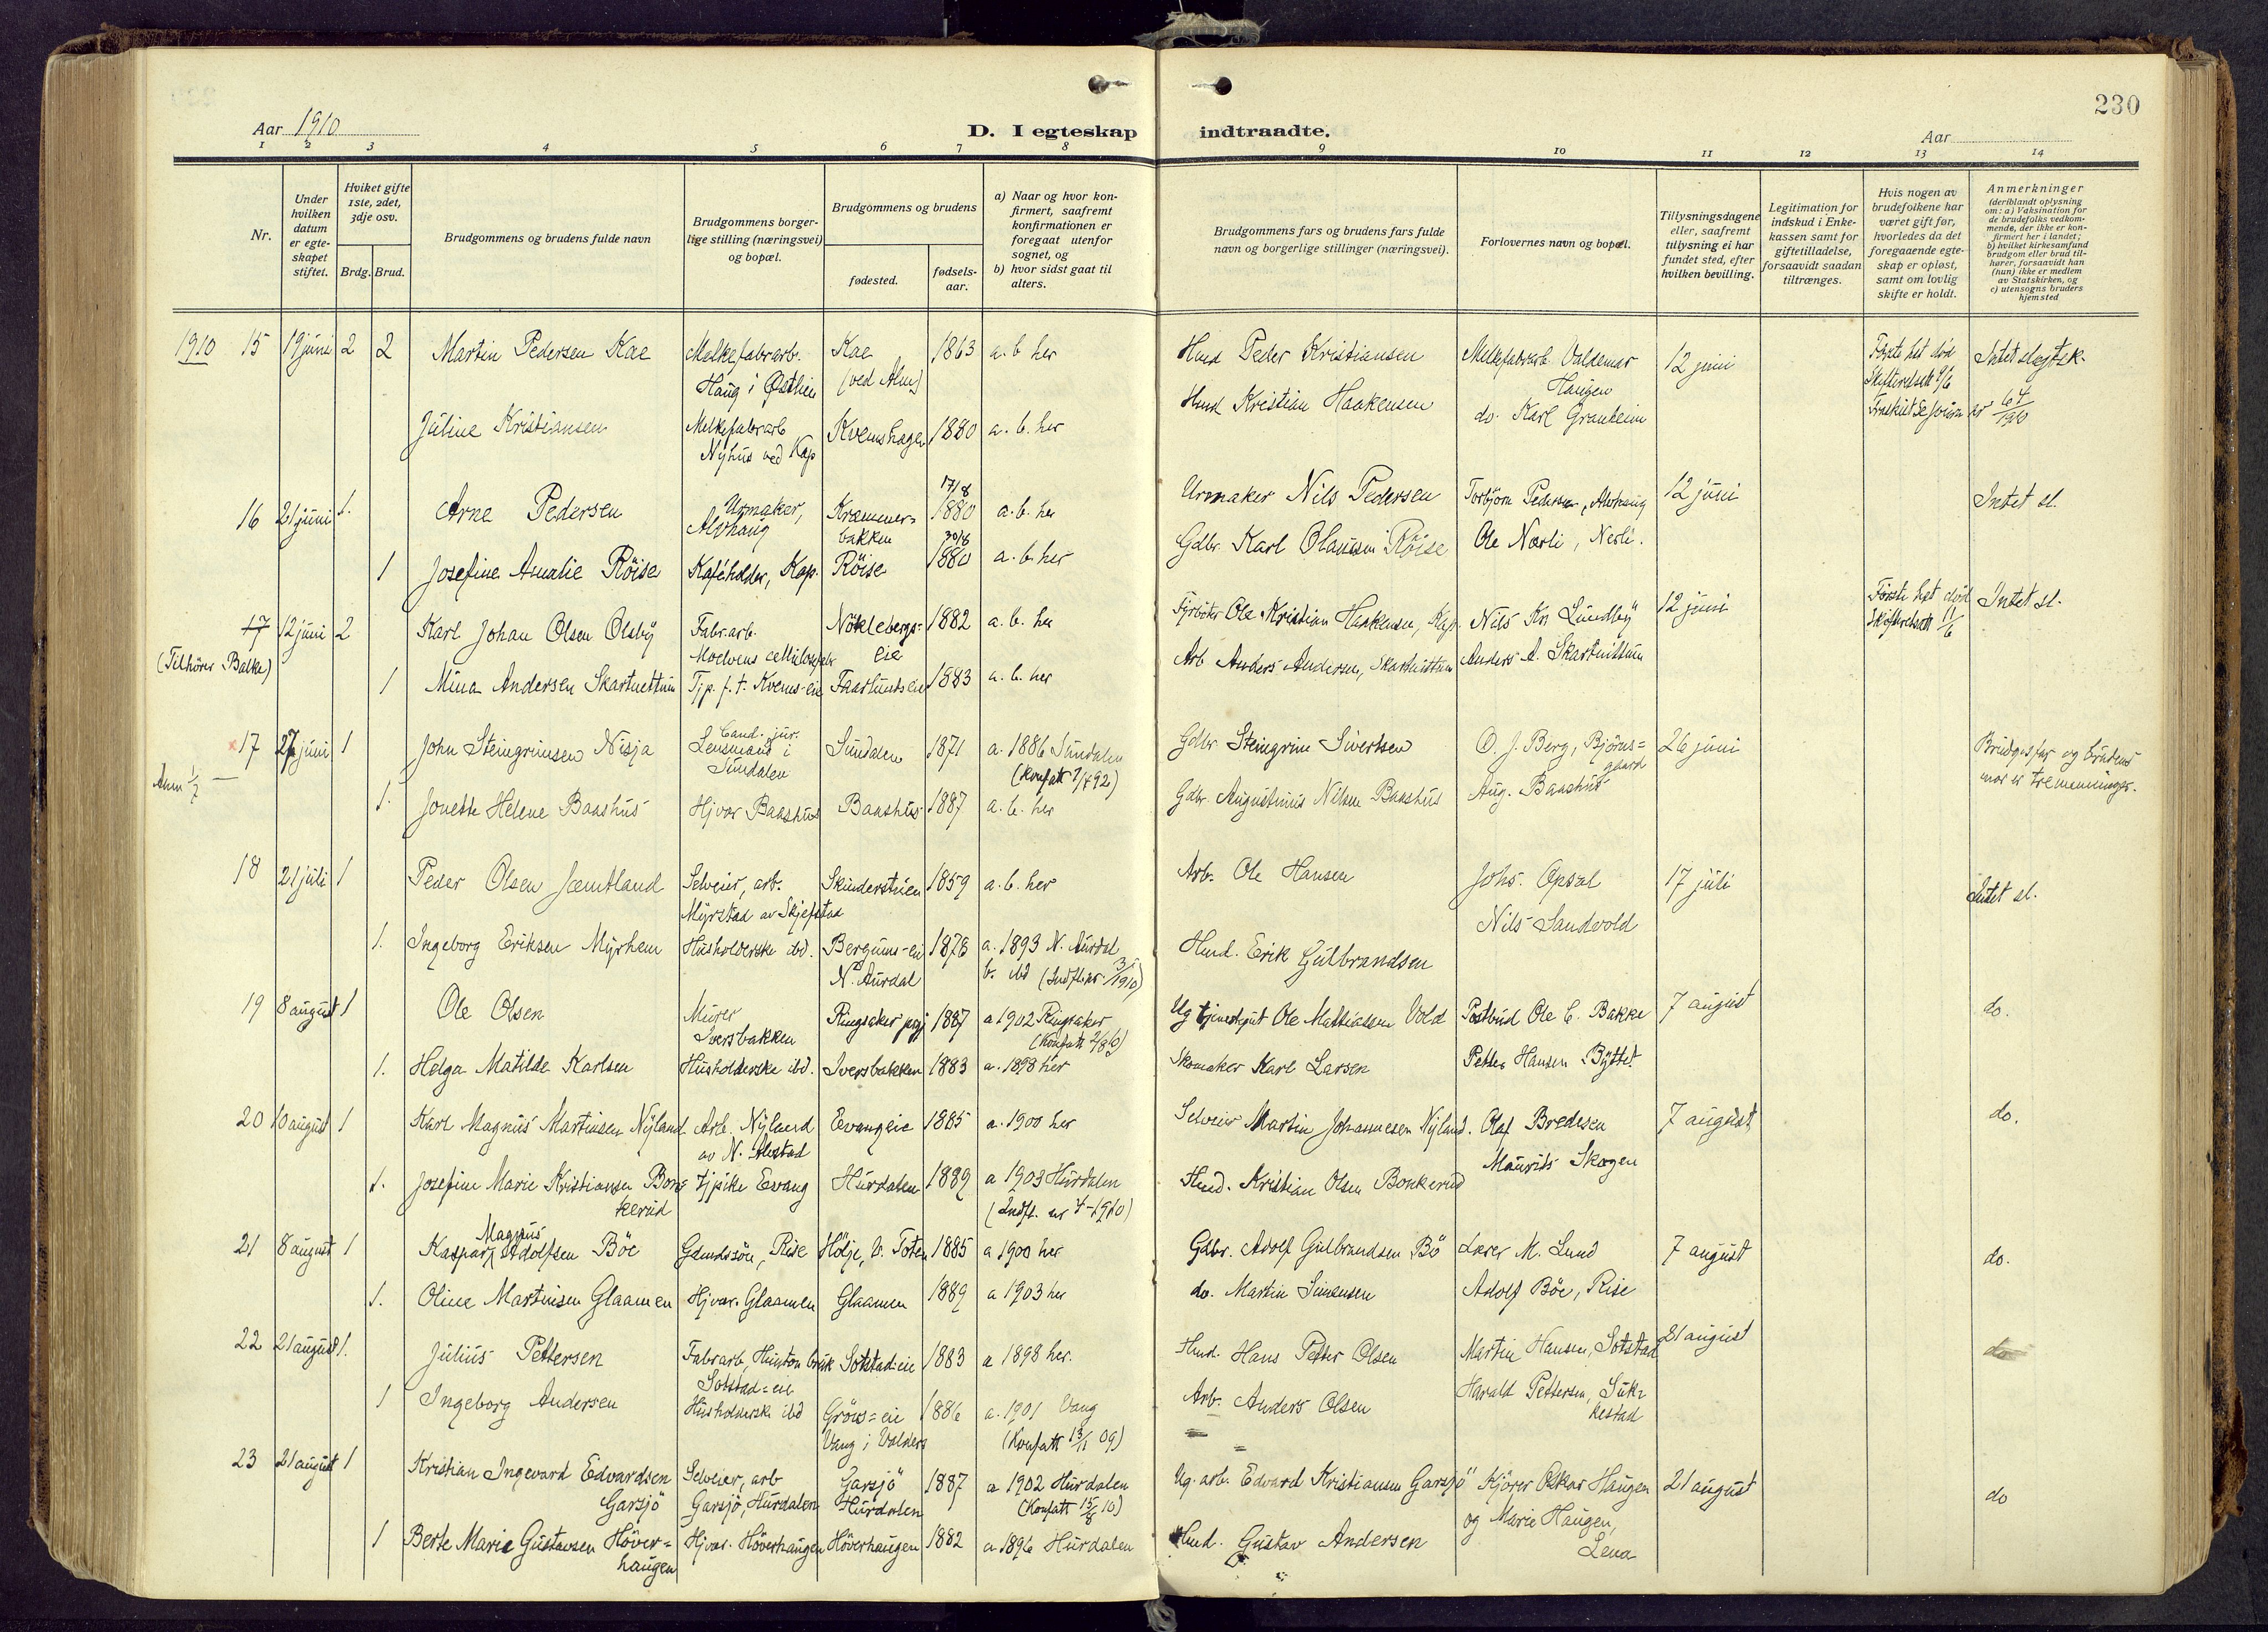 230
Aar 1910
D. I egteskap indtraadte.
Aar
1 2 3 4 5 6 7 8 9 10 11 12 13 14
Nr.
Under hvilken datum er egteskapet stiftet.
Hviket gifte 1ste, 2det, 3dje osv.
Brdg. Brud.
Brudgommens og brudens fulde navn
Brudgommens borgerlige stilling (næringsvei) og bopæl.
Brudgommens og brudens
fødested.
fødselsaar.
a) Naar og hvor konfirmert, saafremt konfirmationen er foregaat utenfor sognet, og
b) hvor sidst gaat til alters.
Brudgommens fars og brudens fars fulde navn og borgerlige stillinger (næringsvei).
Forlovernes navn og bopæl.
Tillysningsdagene eller, saafremt tillysning ei har fundet sted, efter hvilken bevilling.
Legitimation for indskud i Enkekassen samt for giftetilladelse, forsaavidt saadan tiltrænges.
Hvis nogen av brudefolkene har været gift før, hvorledes da det foregaaende egteskap er opløst, samt om lovlig skifte er holdt.
Anmerkninger (deriblandt oplysning om: a) Vaksination for de brudefolks vedkommende, der ikke er konfirmert her i landet; b) hvilket kirkesamfund brudgom eller brud tilhører, forsaavidt han (hun) ikke er medlem av Statskirken, og c) utensogns bruders hjemsted
1910 15 19 juni 2 2 Martin Pedersen Kae Melkefabrarb. Haug i Østlien Kae (ved Alm) 1863 a. b her Husd Peder Kristiansen Melkefabrarb. Valdemar Haugen 12 juni Første het død Skifteretsatt 9/6 Intet slegtsk.
Juline Kristiansen Melkefabrarb Nyhus ved Kap Kvemshagen 1880 a. b. her Husd Kristian Haakensen do. Karl Granheim 64/1910
16 21 juni 1. Arne Pedersen Urmaker, Alvhaug Kræmmerbakken 17/8 1880 a. b. her Urmaker Nils Pedersen Torbjørn Pedersen, Alvhaug 12 juni Intet sl.
1 Josefine Amalie Röise Kaféholder, Kap. Röise 30/8 1880 a. b. her Gdbr. Karl Olausen Röise Ole Nerli, Nerli.
17 12 juni 2 Karl Johan Olsen Olsby Fabr.arb. Moelvens cellulosefabr Nöklebergseie 1882 a. b. her Fyrböter Ole Kristian Haakensen, Kap. Nils Kr. Lundby 12 juni Første het død Skifteretsatt 11/6 Intet sl.
(Tilhører Balke)
1 Mina Andersen Skartnettum Tjp. f. t. Kvems-eie Faarlunds eie 1883 a. b. her Arb Anders Andersen, Skartnittum Anders A. Skartnittum
17 27 juni 1 John Steingrimsen Nisja Cand. jur. Lensmand i Sundalen Sundalen 1871 a. 1886 Sundalen (Konfatt 7/4 92) Gdbr. Steingrim Sivertsen O. J. Berg, Björnsgaard 26 juni Brudgs far og brudens mor er tremenninger.
Anm 1/7
1. Jonette Helene Baashus Hjvær Baashus Baashus 1887 a. b. her Gdbr. Augustinus Nilsen Baashus Aug. Baashus
18 21 juli 1 Peder Olsen Jæmtland Selveier, arb. Myrstad av Skjefstad Skinderstuen 1859 a. b. her Arb. Ole Hansen Johs. Opsal 17 juli Intet sl.
1. Ingeborg Eriksen Myrhem Husholderske ibd. Bergums-eie N. Aurdal 1878 a. 1893 N. Aurdal b. ibd Husd. Erik Gulbrandsen Nils Sandvold
19 8 august 1 Ole Olsen Murer Iversbakken Ringsaker prgj 1887 a 1902 Ringsaker Ug tjenestgut Ole Mathiassen Vold Postbud Ole C. Bakke 7 august do.
1. Helga Matilde Karlsen Husholderske ibd. Iversbakken 1883 a. 1898 her Skomaker Karl Larsen Petter Hansen Byttet
20 10 august 1 Karl Magnus Martinsen Nyland Arb. Nyland av N. Alestad Evangeie 1885 a. 1900 her Selveier Martin Johannesen Nyland. Olaf Bredesen 7 august do.
1. Josefine Marie Kristiansen Bonkerud tjpike Evang Hurdalen 1889 a 1903 Hurdalen (Indfl. nr 4-1910) Husd. Kristian Olsen Bonkerud Maurits Skogen
21 8 august 1 Kaspar Magnus Adolfsen Böe Gdmdssön, Rise Hölje, V. Toten 1885 a 1900 her Gdbr. Adolf Gulbrandsen Bö Lærer M. Lund 7 august do.
1. Oline Martinsen Glaamen Hjvær. Glaamen Glaamen 1889 a 1903 her do. Martin Simensen Adolf Böe, Rise
22 21 august 1. Julius Pettersen Fabrarb, Hunton bruk Sotstad=eie Sotstad-eie 1883 a 1898 her. Husd. Hans Petter Olsen Martin Hansen, Sotstad 21 august do
1 Ingeborg Andersen Husholderske ibd Gröns=eie Vang i Valders 1886 a. 1901 Vang (Konfatt 13/11 09) Arb. Anders Olsen Harald Pettersen, Sukkestad
23 21 august 1 Kristian Ingevard Edvardsen Garsjö Selveier, arb Garsjö, Hurdalen Garsjö Hurdalen 1887 a 1902 Hurdalen (Konfatt 15/8 10) Ug. arb. Edvard Kristiansen Garsjö Kjörer Oskar Haugen og Marie Haugen, Lena 21 august do
1 Berte Marie Gustavsen Höverhaugen Hjvær. Höverhaugen Höverhaugen 1882 a 1896 Hurdalen Husd. Gustav Andersen